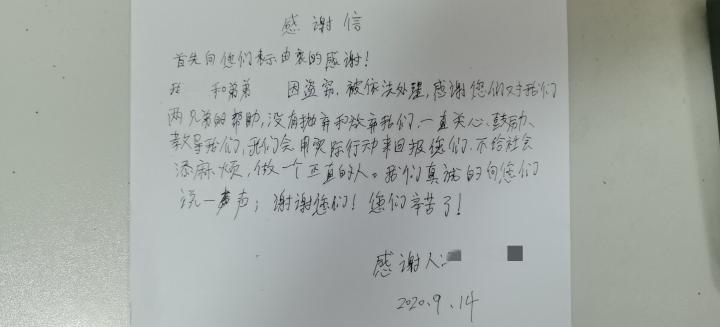 感谢信
首先向您们表示由衷的感谢！
我 和弟弟 因盗窃，被依法处理，感谢您们对我们
两兄弟的帮助，没有抛弃和放弃我们，一直关心、鼓励、
教导我们，我们会用实际行动来回报您们，不给社会
添麻烦，做一个正直的人。我们真诚的向您们
说一声声；谢谢您们！您们辛苦了！
感谢人：
2020.9.14